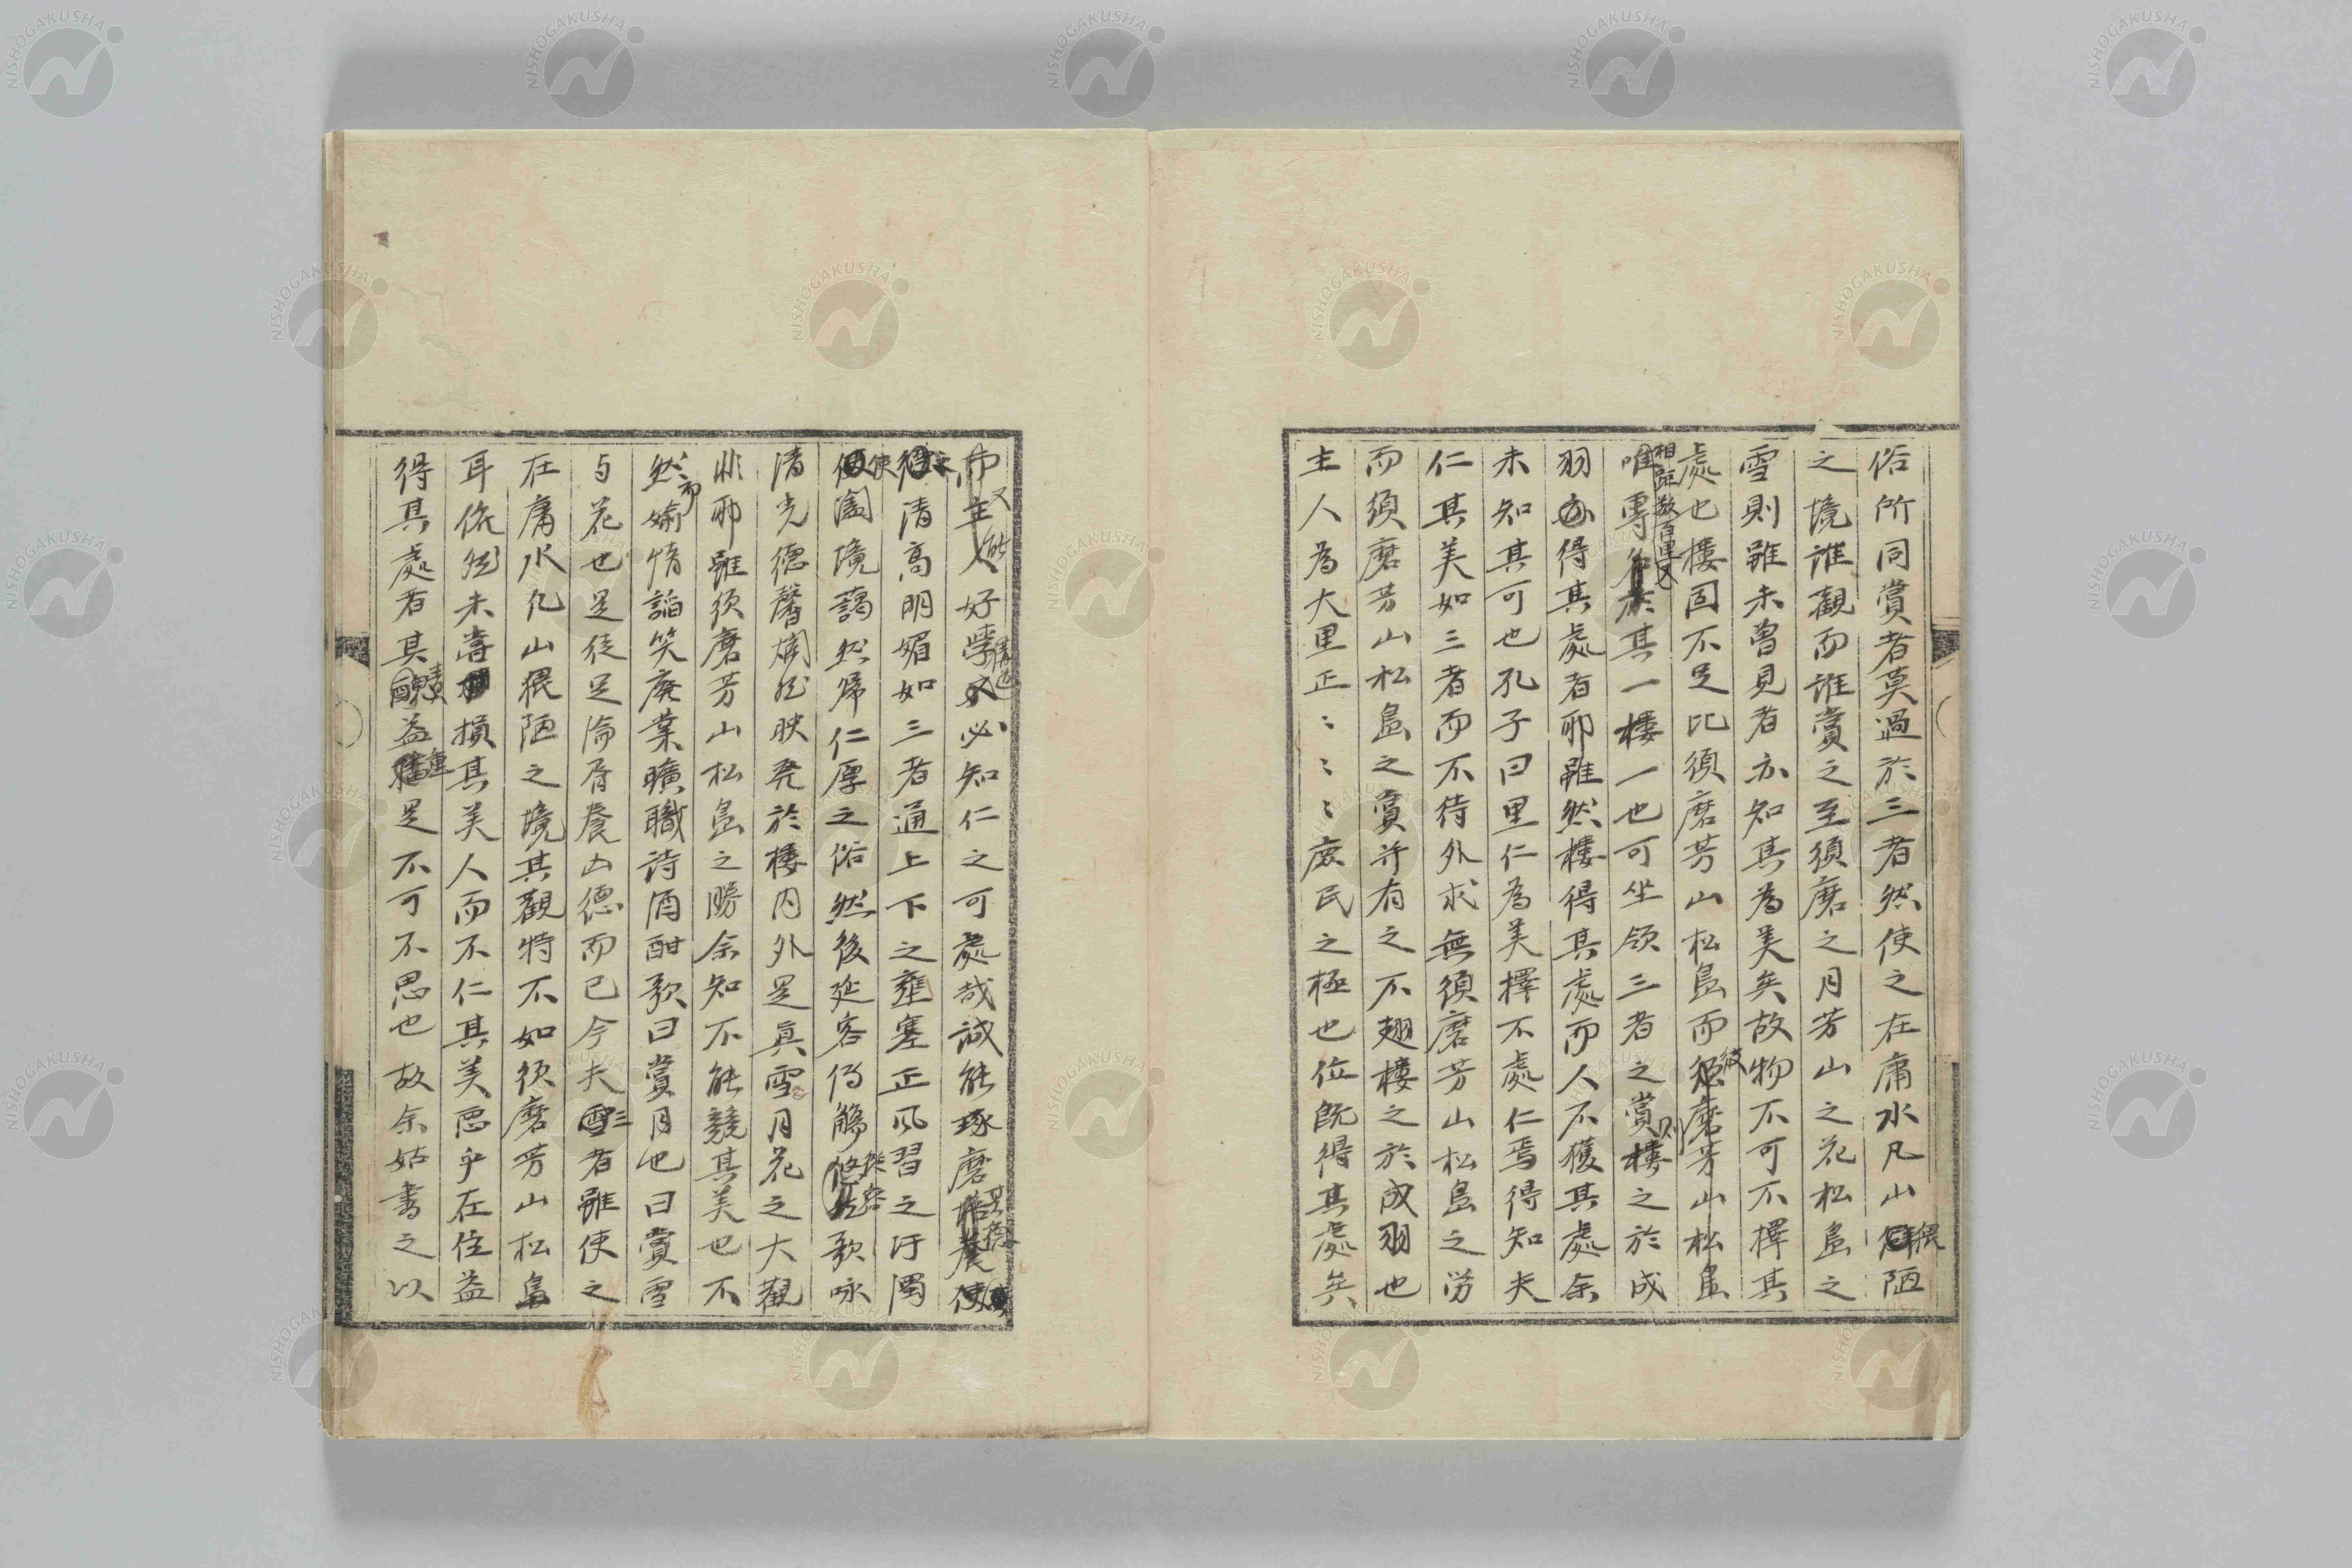 俗所同賞者莫過於三者然使之在庸水凡山猥陋
之境誰觀而誰賞之至須磨之月芳山之花松島之
雪則雖未曽見者亦知其為美矣故物不可不擇其
處也樓固不足比須磨芳山松島而彼
相距數百里又
唯專其一樓一也可坐領三者之賞則樓之於成
羽亦得其處者耶雖然樓得其處而人不獲其處余
未知其可也孔子曰里仁為美擇不處仁焉得知夫
仁其美如三者而不待外求無須磨芳山松島之労
而須磨芳山松島之賞并有之不翅樓之於成羽也
主人為大里正〻〻〻庶民之極也位既得其處矣
而又能好學必知仁之可處哉誠能琢磨其德
清高明媚如三者通上下之壅塞正風習之汙濁
使闔境藹然帰仁厚之俗然後延客侑觴從容歌咏
清光德馨炳然映発於樓内外是真雪月花之大觀
非耶雖須磨芳山松島之勝余知不能競其美也不
然而婾惰謟笑廃業曠職詩酒酣歌曰賞月也曰賞雪
与花也是徒足淪胥養凶德而已今夫三者雖使之
在庸水凡山猥陋之境其觀特不如須磨芳山松島
耳依然未嘗損其美人而不仁其美悪乎在位益
得其處者其責益重是不可不思也故余姑書之以
NISHOGAKUSHA